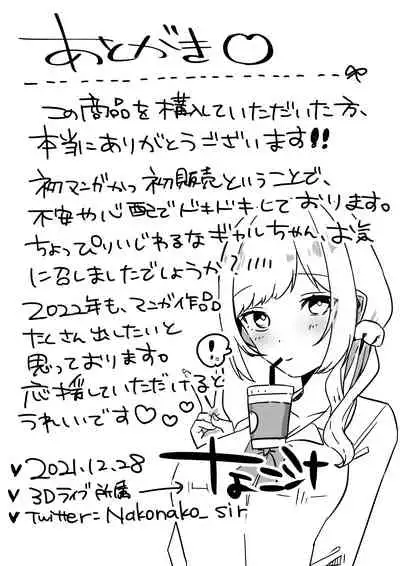 あとがき♡
この商品を購入していただいた方、
本当にありがとうございます!!
初マンガかつ初販売ということで、
不安や心配でドキドキしております。
ちょっぴりいじわるなギャルちゃん、お気
に召しましたでしょうか?
2022年も、マンガ作品
たくさん出したいと
思っております。
応援していただけると
うれしいです♡♡♡
!
♥ 2021.12.28
♥ 3Dライブ所属
♥ Twitter:Nakonako_sir